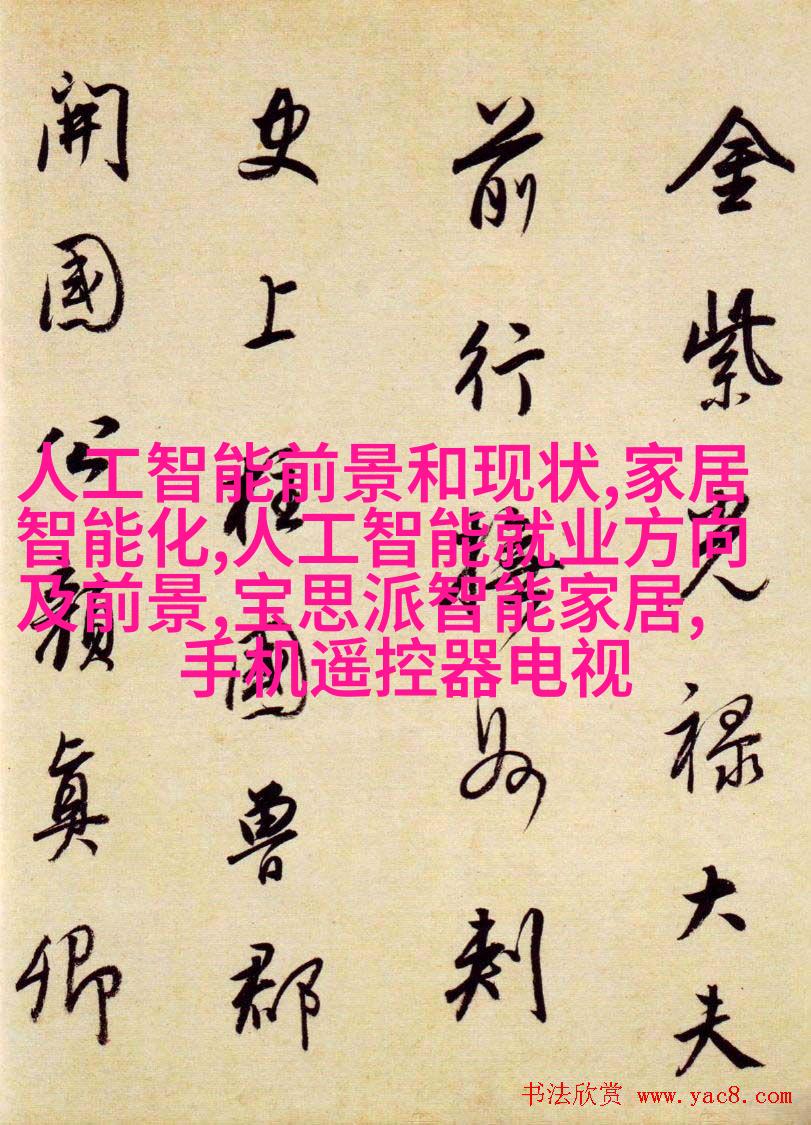 金紫光禄大夫
前行撫州刺
史上柱國魯郡
開國公顏真卿
人工智能前景和现状,家居
智能化,人工智能就业方向
及前景,宝思派智能家居,
手机遥控器电视
书法欣赏 www.yac8.com